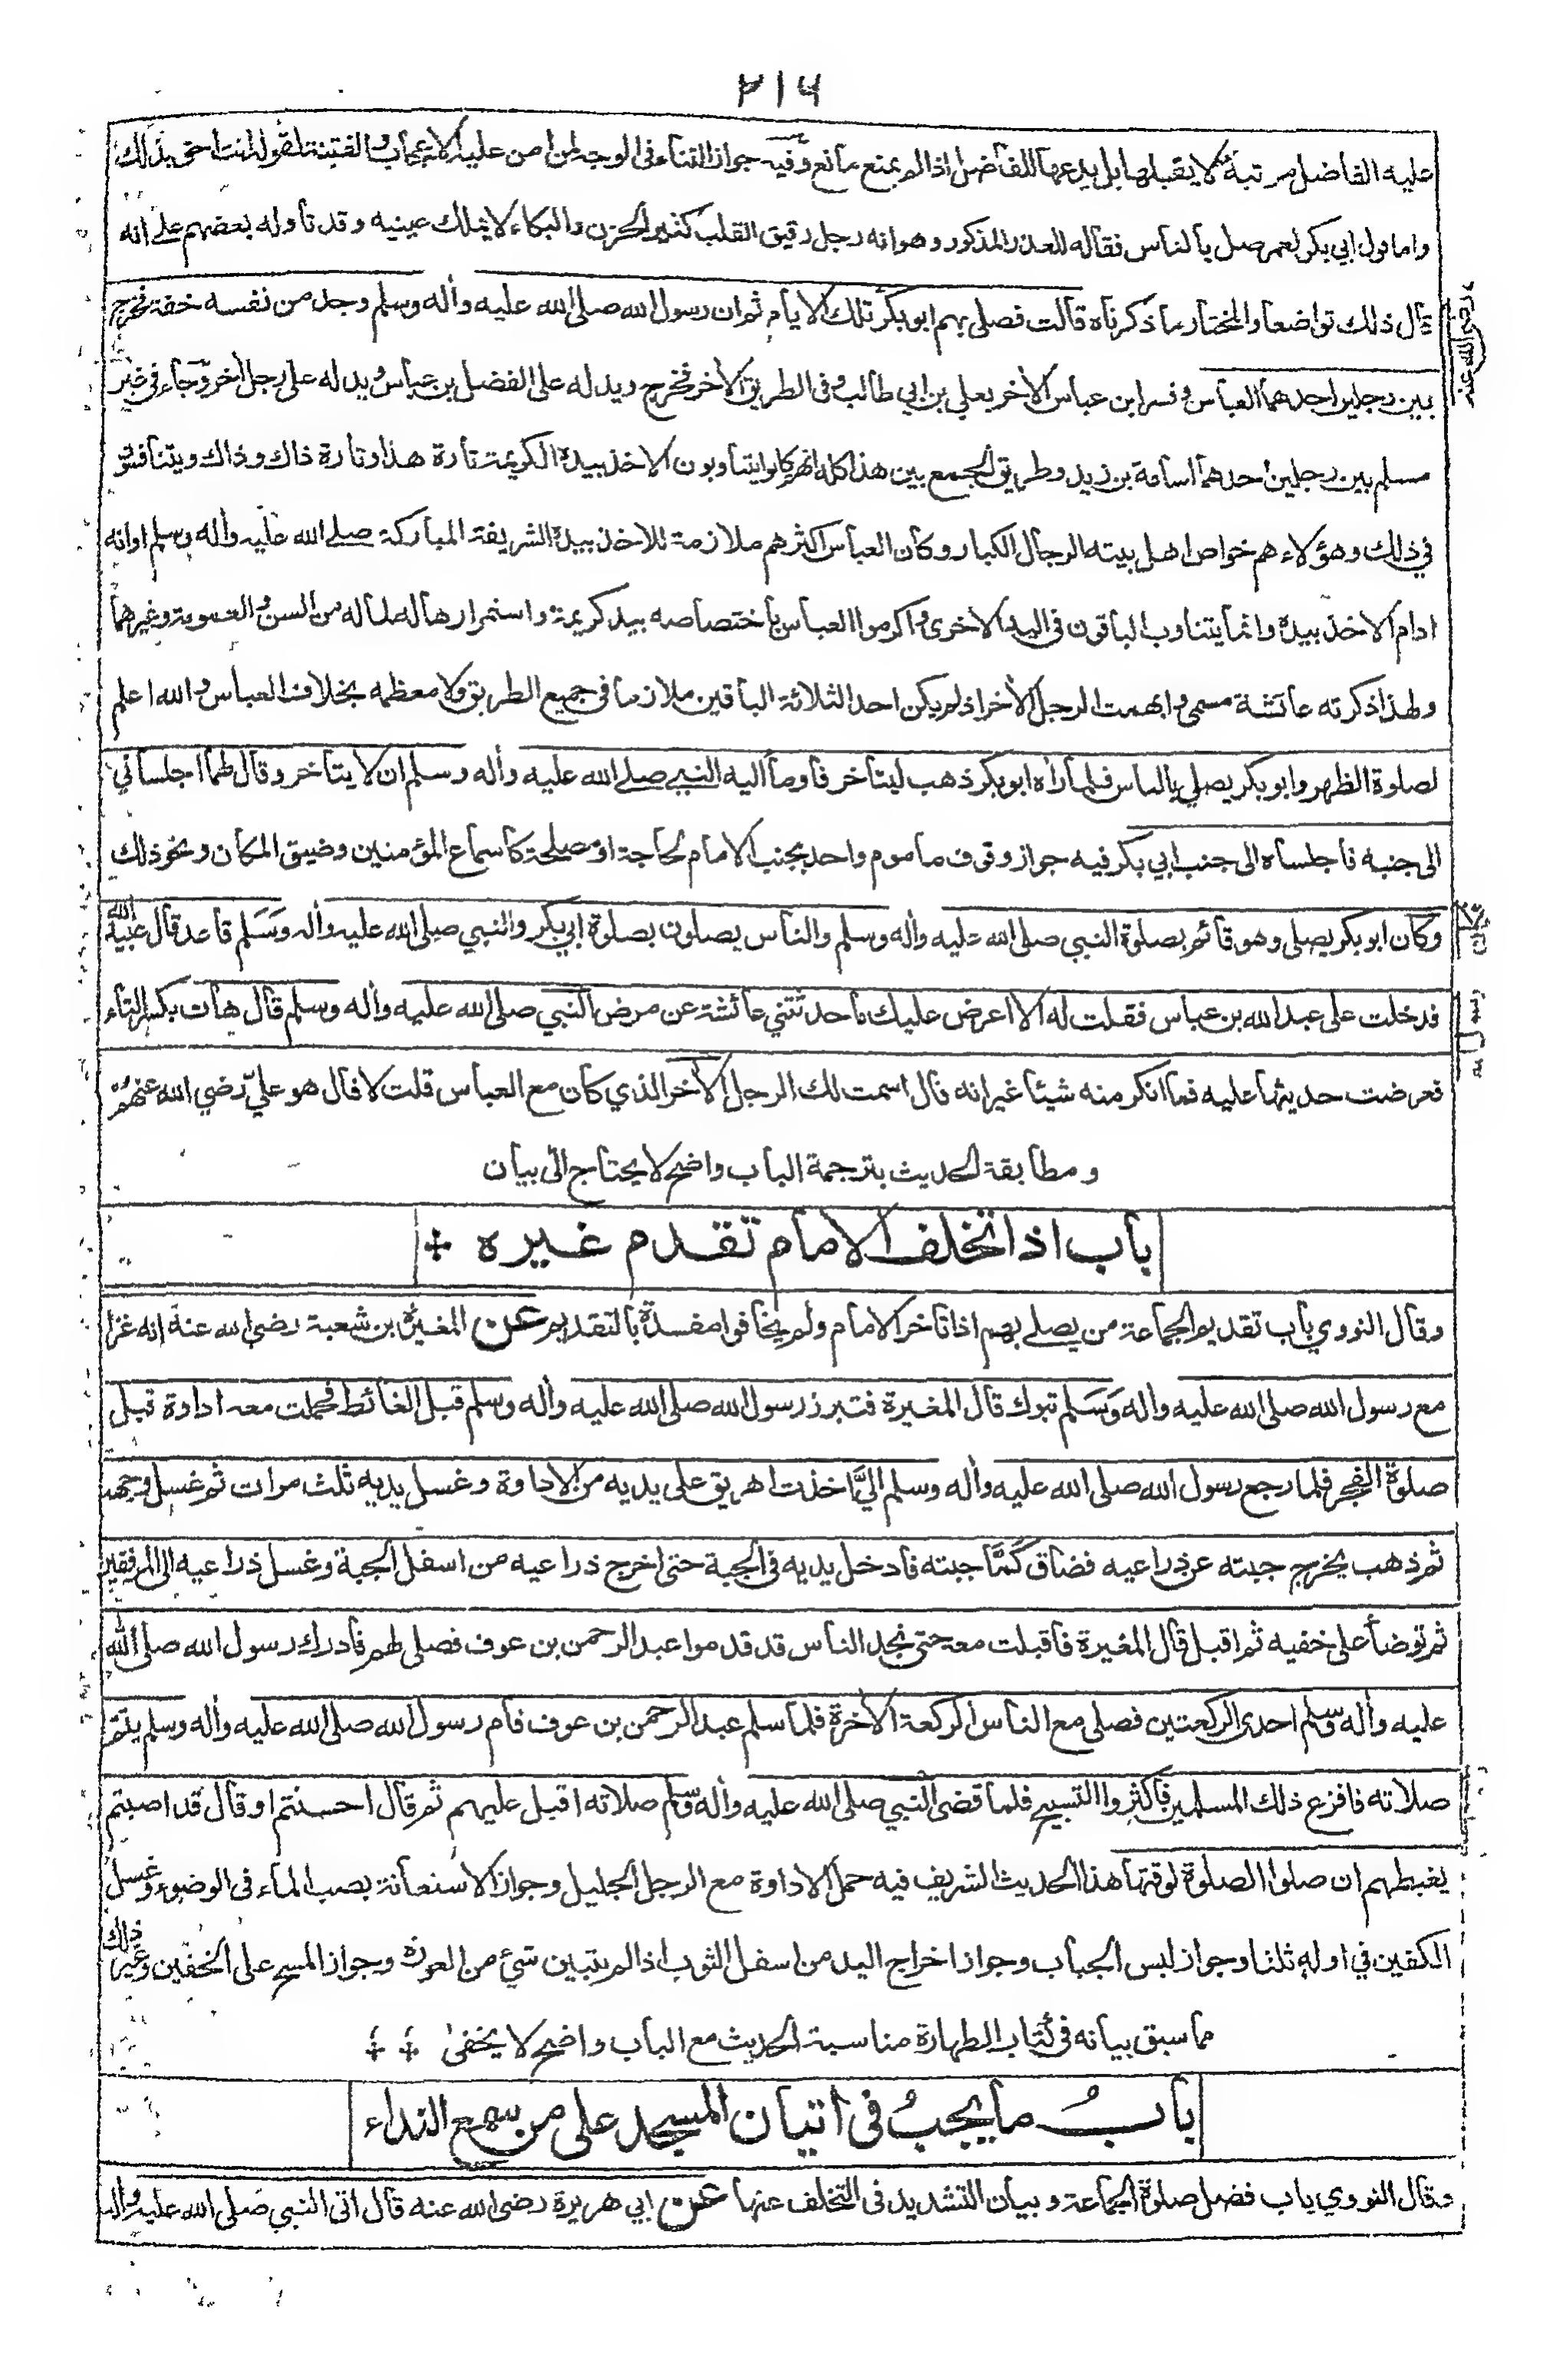 ٢١٦
عليه الفاضل مرتبة لا يقبلها بل يدعها للفاضل اذا لم يمنع مانع وفيه جواز الثناء فى الوجه لمن امن عليه الاعجاب والفتنة لقوله انت احق بذلك
واما قول ابي بكر لعمر صل بالناس فقاله للعذر المذكور وهو انه رجل رقيق القلب كثير الحزن والبكاء لا يملك عينيه وقد تأوله بعضهم على انه
قال ذلك تواضعا والمختار ما ذكرناه قالت فصلى بهم ابو بكر تلك الايام ثم ان رسول الله صلى الله عليه واله وسلم وجد من نفسه خفة فخرج
بين رجلين احدهما العباس وفسر ابن عباس الأخر بعلي بن ابي طالب وفى الطريق الأخر فخرج ويد له على الفضل بن عباس ويد له على رجل أخر وجاء فى غير
مسلم بين رجلين احدهما اسامة بن زيد وطريق الجمع بين هذا كله انهم كانوا يتناوبون الاخذ بيده الكريمة تارة هذا وتارة ذاك وذاك ويتنافسون
في ذلك وهؤلاء هم خواص اهل بيته الرجال الكبار وكان العباس اكثرهم ملازمة للاخذ بيده الشريفة المباركة صلى الله عليه واله وسلم او انه
ادام الاخذ بيده وانما يتناوب الباقون فى اليد الاخرى واكرموا العباس باختصاصه بيد كريمة واستمرارها له لما له من السن والعمومة وغيرهما
ولهذا ذكرته عائشة مسمى وابهمت الرجل الأخر اذ لم يكن احد الثلاثة الباقين ملازما فى جميع الطريق ولا معظمه بخلاف العباس والله اعلم
لصلوة الظهر وابو بكر يصلي بالناس فلما رأه ابو بكر ذهب ليتأخر فأومأ اليه النبي صلى الله عليه واله وسلم ان لا يتأخر وقال لهما اجلساني
الى جنبه فاجلساه الى جنب ابي بكر فيه جواز وقوف مأموم واحد بجنب الامام لحاجة او مصلحة كاسماع المؤمنين وضيق المكان ونحو ذلك
وكان ابو بكر يصلى وهو قائم بصلوة النبي صلى الله عليه واله وسلم والناس يصلون بصلوة ابي بكر والنبي صلى الله عليه واله وسلم قاعد قال عبيد الله
فدخلت على عبد الله بن عباس فقلت له الا اعرض عليك ما حدثتني عائشة عن مرض النبي صلى الله عليه واله وسلم قال هات بكسر التاء
فعرضت حديثها عليه فما انكر منه شيئا غير انه قال اسمت لك الرجل الأخر الذي كان مع العباس قلت لا قال هو عليّ رضي الله عنهم
ومطابقة الحديث بترجمة الباب واضح لا يحتاج الى بيان
باب اذا تخلف الامام تقدم غيره
وقال النووي باب تقديم الجماعة من يصلي بهم اذا تأخر الامام ولم يخافوا مفسدة بالتقديم عن المغيرة بن شعبة رضي الله عنه انه غزا
مع رسول الله صلى الله عليه واله وَسَلم تبوك قال المغيرة فتبرز رسول الله صلى الله عليه واله وسلم قبل الغائط فحملت معه اداوة قبل
صلوة الفجر فلما رجع رسول الله صلى الله عليه واله وسلم اليَّ اخذت اهريق على يديه من الاداوة وغسل يديه ثلث مرات ثم غسل وجهه
ثم ذهب يخرج جبته عن ذراعيه فضاق كُمَّا جبته فادخل يديه فى الجبة حتى اخرج ذراعيه من اسفل الجبة وغسل ذراعيه الى المرفقين
ثم توضأ على خفيه ثم اقبل قال المغيرة فاقبلت معه حتى نجد الناس قد قدموا عبد الرحمن بن عوف فصلى لهم فادرك رسول الله صلى الله
عليه واله وسلم احدى الركعتين فصلى مع الناس الركعة الأخرة فلما سلم عبد الرحمن بن عوف قام رسول الله صلى الله عليه واله وسلم يتم
صلاته فافزع ذلك المسلمين فاكثروا التسبيح فلما قضى النبي صلى الله عليه واله وسلم صلاته اقبل عليهم ثم قال احسنتم او قال قد اصبتم
يغبطهم ان صلوا الصلوة لوقتها هذا الحديث الشريف فيه حمل الاداوة مع الرجل الجليل وجواز الاستعانة بصب الماء فى الوضوء وغسل
الكفين في اوله ثلثا وجواز لبس الجباب وجواز اخراج اليد من اسفل الثوب اذا لم يتبين شئ من العورة وجواز المسح على الخفين وغير ذلك
ما سبق بيانه فى كتاب الطهارة مناسبة الحديث مع الباب واضح لا يخفى
بابُ ما يجبُ فى اتيان المسجد على من سمع النداء
وقال النووي باب فضل صلوة الجماعة وبيان التشديد فى التخلف عنها عن ابي هريرة رضى الله عنه قال اتى النبي صلى الله عليه واله